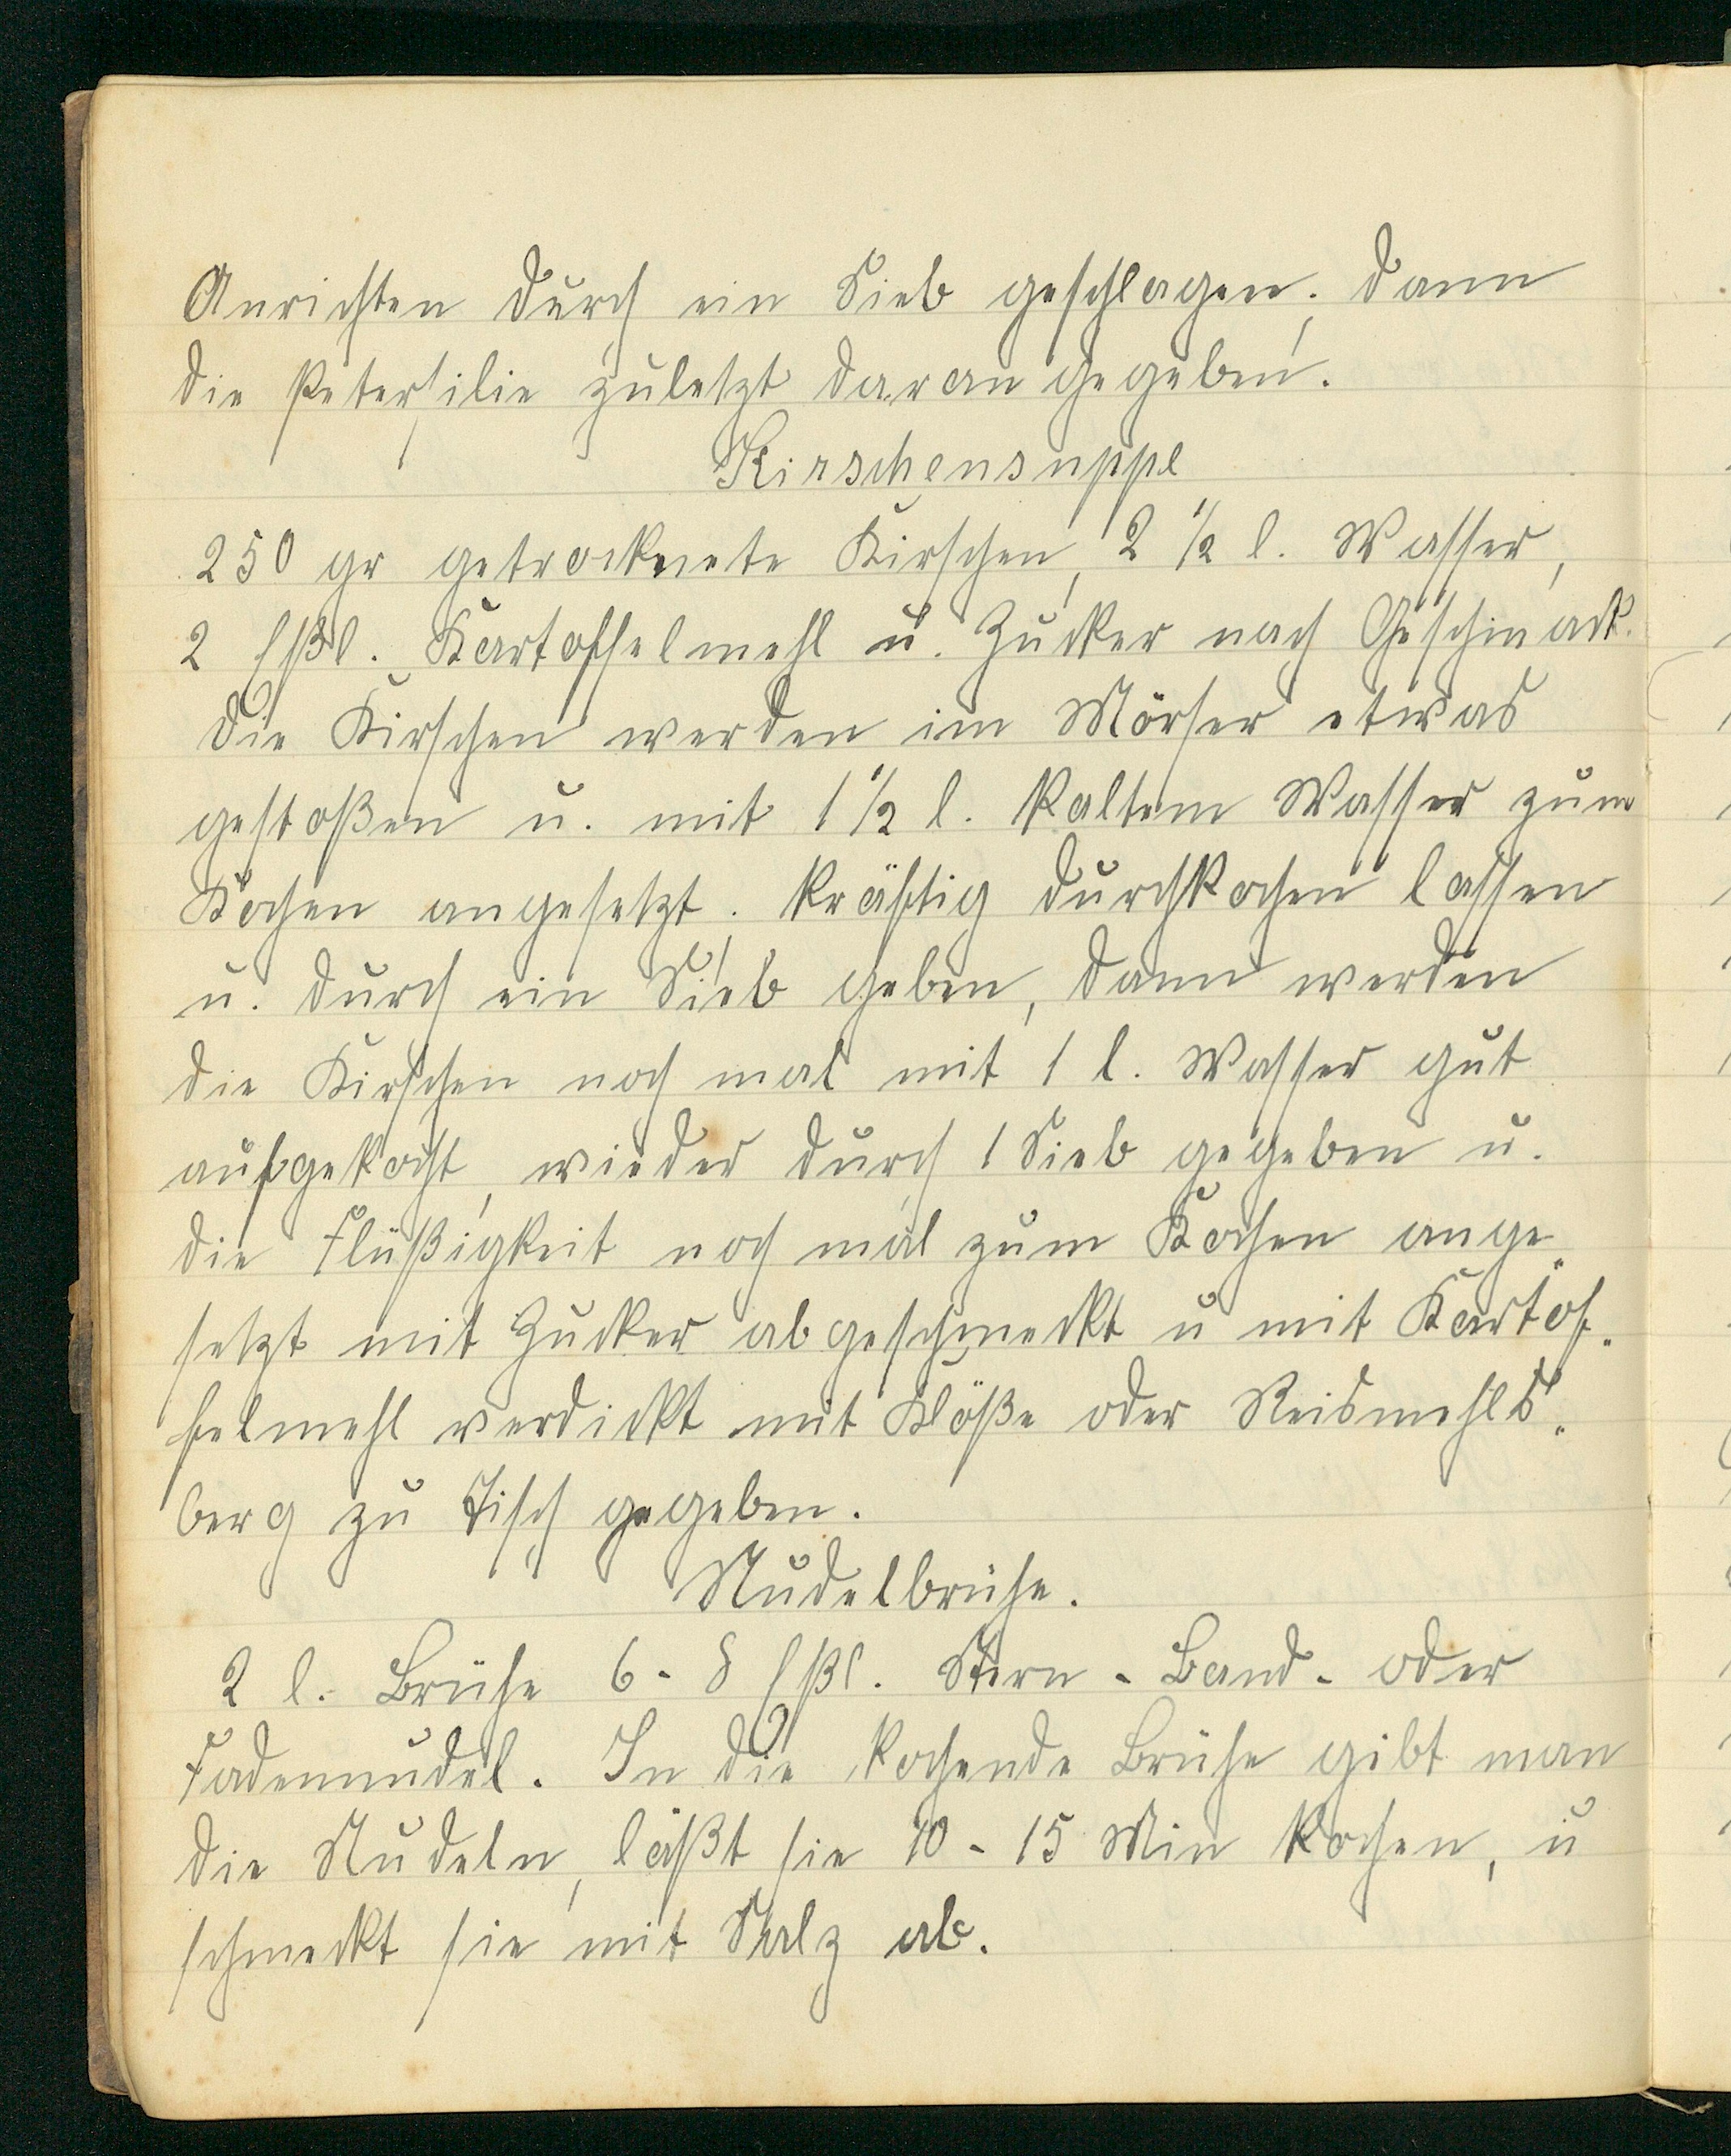 Anrichten durch ein Sieb geschlagen, dann
die Petersilie zuletzt daran gegeben.
Kirschensuppe
250 gr getrocknete Kirschen, 2 1/2 l. Wasser,
2 Eßl. Kartoffelmehl u. Zucker nach Geschmack.
Die Kirschen werden im Mörser etwas
gestoßen u. mit 1 1/2 l. kaltem Wasser zum
Kochen angesetzt. kräftig durchkochen lassen
u. durch ein Sieb geben, dann werden
die Kirschen noch mal mit 1 l. Wasser gut
aufgekocht, wieder durch 1 Sieb gegeben u.
die Flüßigkeit noch mal zum Kochen ange„
setzt mit Zucker abgeschmeckt u mit Kartof„
felmehl verdickt mit Klöße oder Reismehls„
berg zu Tisch gegeben.
Nudelbrühe.
2 l. Brühe 6 - 8 Eßl. Stern - Band - oder
Fadennudel. In die kochende Brühe gibt man
die Nudeln, läßt sie 10 - 15 Min kochen, u
schmeckt sie mit Salz ab.